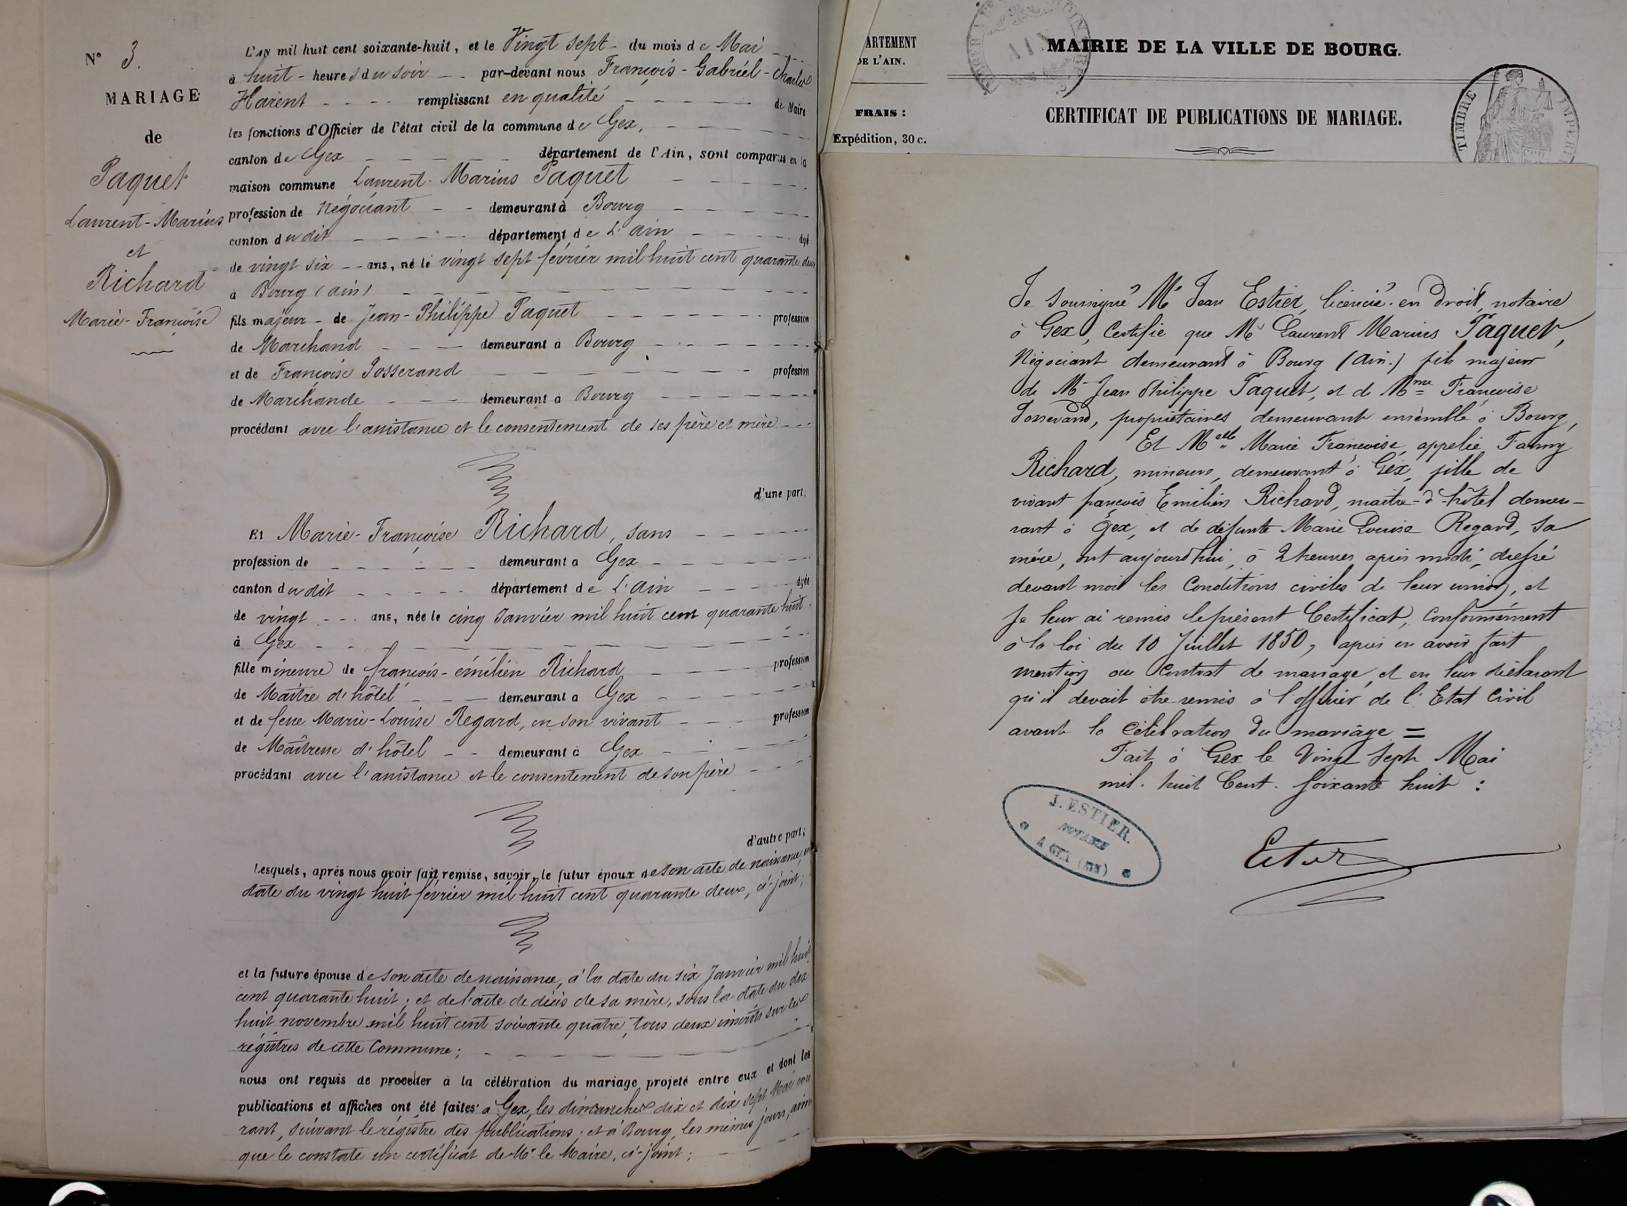 N° 3.
MARIAGE
de
Paquet
Laurent-Marius
et
Richard
Marie-Françoise
L'an mil huit cent soixante-huit, et le Vingt sept du mois de Mai
à huit heures du soir par-devant nous François-Gabriel-Charles
Harent remplissant en qualité de Maire
les fonctions d'Officier de l'état civil de la commune de Gex,
canton de Gex département de l'Ain, sont comparus en la
maison commune Laurent-Marius Paquet
profession de Négociant demeurant à Bourg
canton du dit département de L'ain âgé
de vingt six ans, né le vingt sept février mil huit cent quarante deux
à Bourg (ain)
fils majeur de Jean-Philippe Paquet profession
de Marchand demeurant à Bourg
et de Françoise Josserand profession
de Marchande demeurant à Bourg
procédant avec l'assistance et le consentement de ses père et mère
d'une part.
Et Marie-Françoise Richard, sans
profession de demeurant à Gex
canton du dit département de L'ain âgée
de vingt ans, née le cinq Janvier mil huit cent quarante huit
à Gex
fille mineure de françois-émilien Richard profession
de Maître d'hôtel demeurant à Gex
et de feue Marie-Louise Regard, en son vivant profession
de Maîtresse d'hôtel demeurant à Gex
procédant avec l'assistance et le consentement de son père
d'autre part;
Lesquels, après nous avoir fait remise, savoir, le futur époux de son acte de naissance, en
date du vingt huit février mil huit cent quarante deux, ci-joint;
et la future épouse de son acte de naissance, à la date du six Janvier mil huit
cent quarante huit; et de l'acte de décès de sa mère, sous la date du dix
huit novembre mil huit cent soixante quatre, tous deux inscrits sur les
régistres de cette Commune;
nous ont requis de procéder à la célébration du mariage projeté entre eux et dont les
publications et affiches ont été faites à Gex, les dimanches dix et dix sept Mai cou
rant, suivant le régistre des publications; et à Bourg, les mêmes jours, ainsi
que le constate un certificat de Mr le Maire, ci-joint;
ARTEMENT
DE L'AIN.
FRAIS :
Expédition, 30 c.
MAIRIE DE LA VILLE DE BOURG.
CERTIFICAT DE PUBLICATIONS DE MARIAGE.
AIN
TIMBRE IMPERI
Je soussigné Me Jean Estier, licencié en droit, notaire
à Gex, Certifie que Mr Laurent Marius Paquet,
Négociant demeurant à Bourg (Ain.) fils majeur
de Mr Jean Philippe Paquet, et de Mme Françoise
Josserand, propriétaires demeurant ensemble à Bourg,
Et Melle Marie Françoise, appelée Fanny
Richard, mineure, demeurant à Gex, fille de
vivant françois Emilien Richard, maître-d'hôtel demeu-
rant à Gex, et de défunte Marie Louise Regard, sa
mère, ont aujourd'hui, à 2 heures après midi, dressé
devant moi les Conditions civiles de leur union, et
Je leur ai remis le présent Certificat, conformément
à la loi du 10 Juillet 1850, après en avoir fait
mention au Contrat de mariage, et en leur déclarant
qu'il devait être remis à l'officier de l'Etat Civil
avant la célébration du mariage =
Fait à Gex le Vingt Sept Mai
mil. huit Cent. soixante huit :
J. ESTIER.
NOTAIRE
A GEX (AIN)
Estier